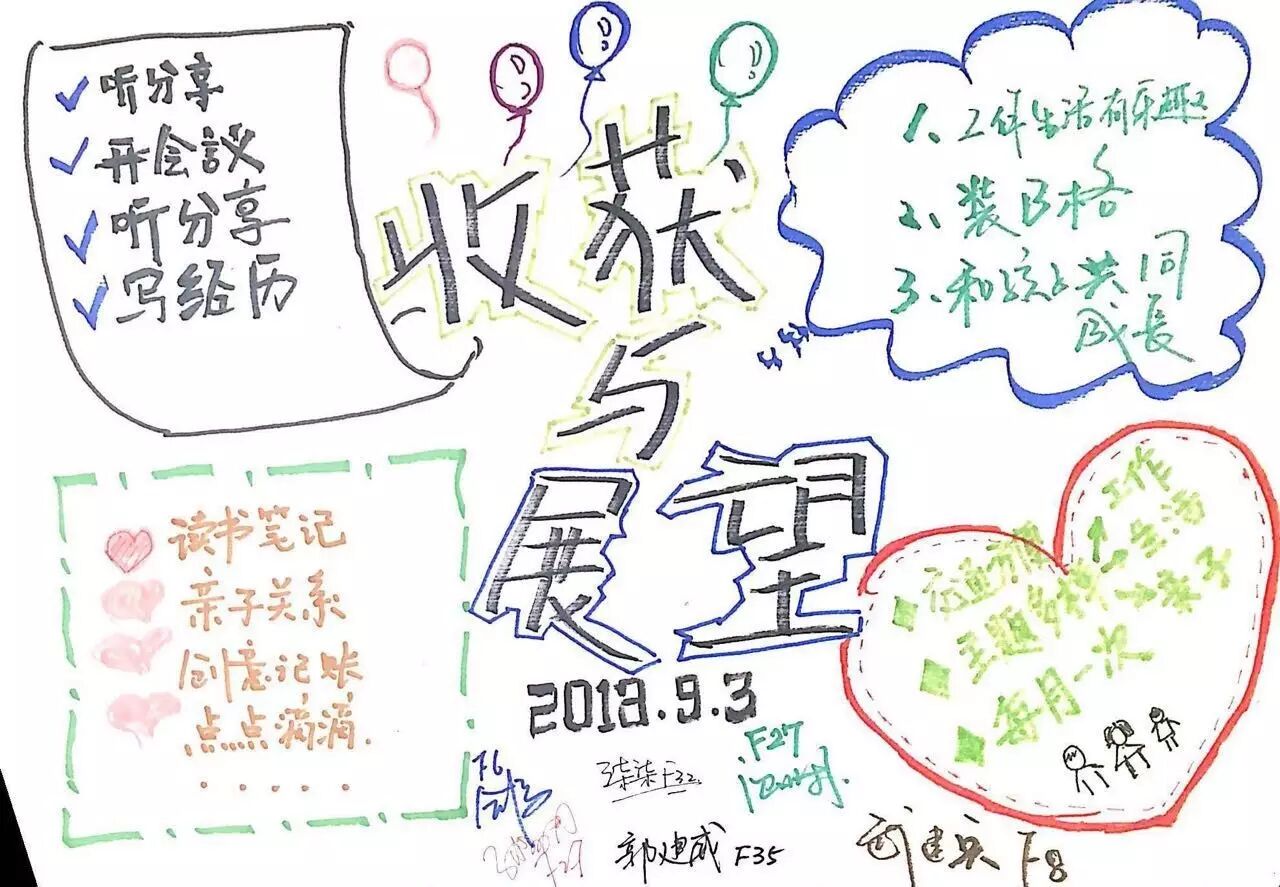 听分享
开会议
听分享
写经历
收获
与
展望
2018.9.3
1、工作生活有乐趣
2、装B格
3、和孩子共同
成長
读书笔记
亲子关系
创意记账
点点滴滴.
......
工作
生活
主题多样
亲子
每月一次
F6
柒柒 F32
F27
F29
郭迪成 F35
武建兵 F8